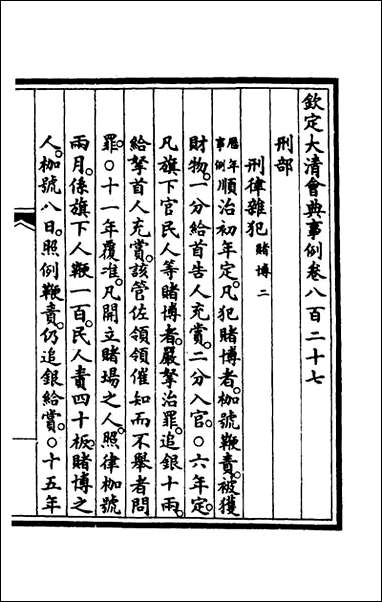 欽定大清會典事例卷八百二十七
刑部
刑律雜犯賭博二
歷年事例順治初年定。凡犯賭博者。枷號鞭責。被獲
財物。一分給首告人充賞。二分入官。○六年定。
凡旗下官民人等賭博者。嚴拏治罪。追銀十兩。
給拏首人充賞。該管佐領領催知而不舉者問
罪。○十一年覆准。凡開立賭場之人。照律枷號
兩月。係旗下人鞭一百。民人責四十板。賭博之
人。枷號八日。照例鞭責。仍追銀給賞。○十五年